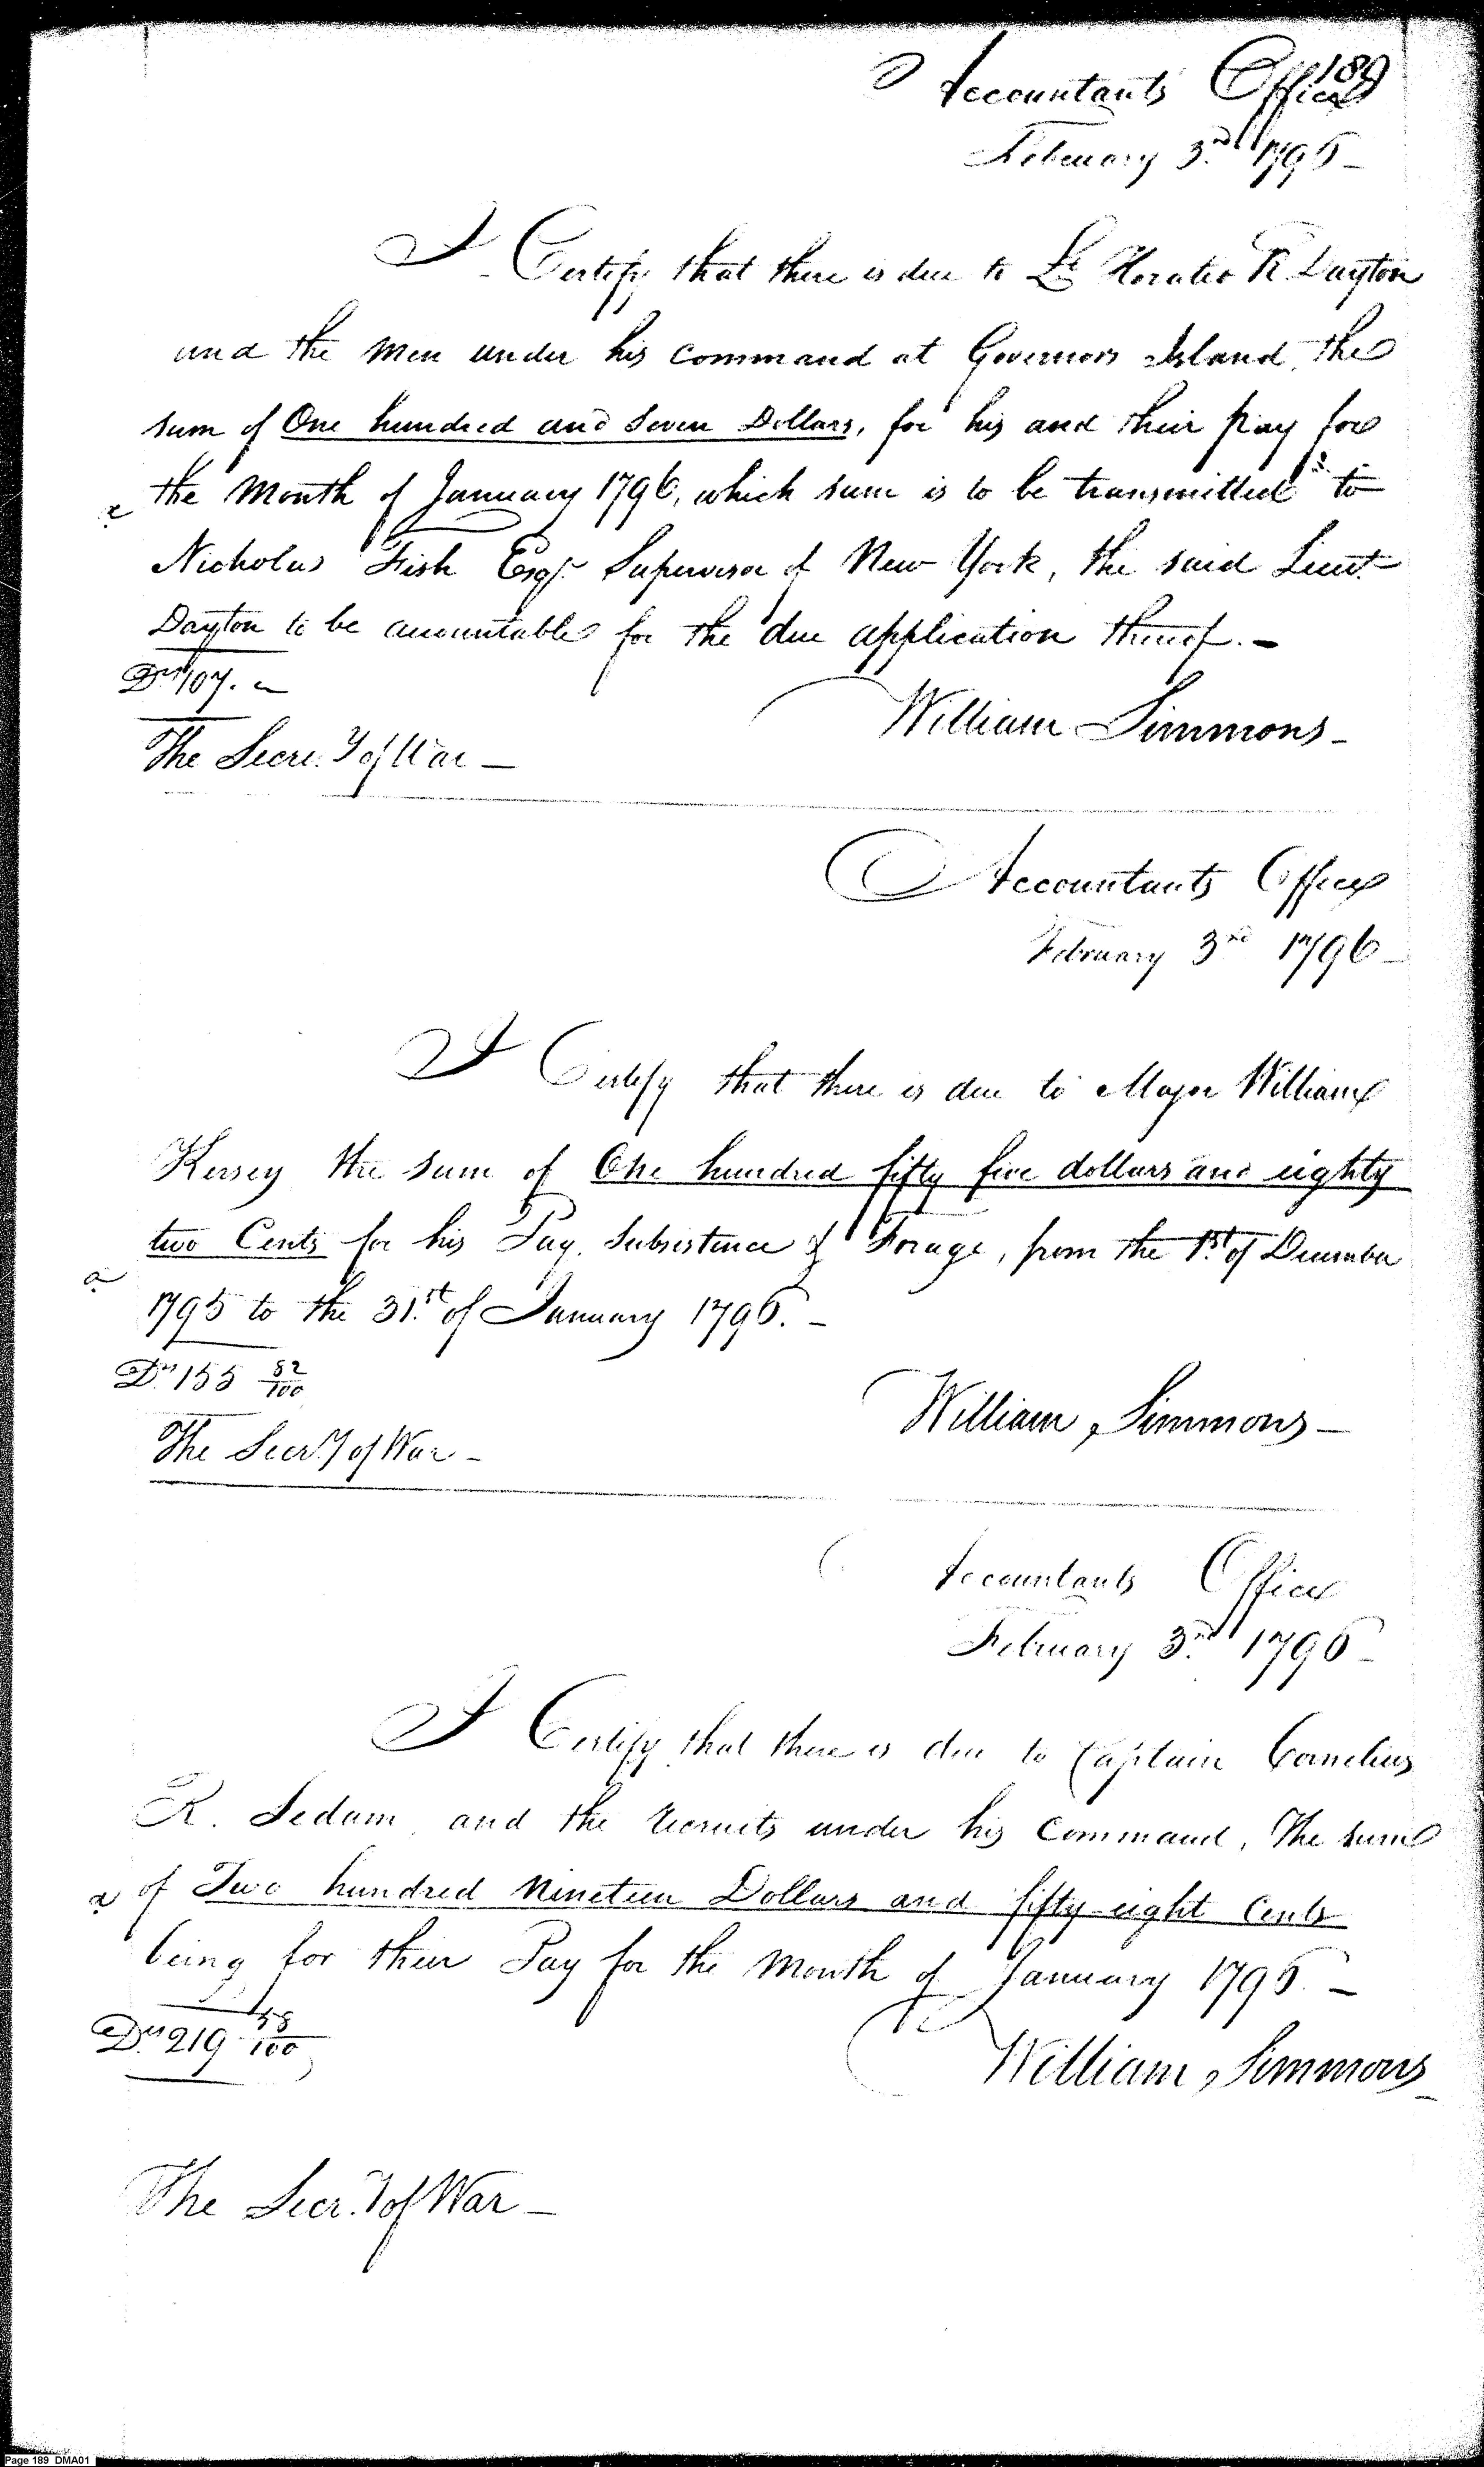 189
Accountants Office
February 3rd 1796 -
I Certify that there is due to Lt Horatio R Dayton
and the men under his command at Governors Island, the
sum of One hundred and seven Dollars, for his and their pay for
a the Month of January 1796, which sum is to be transmitted to
Nicholas Fish Esqr. Supervisor of New York, the said Lieut.
Dayton to be accountable for the due application thereof. -
Drs 107. -
William Simmons -
The Secre.y of War -
Accountants Office
February 3rd 1796 -
I Certify that there is due to Major William
Kersey the sum of One hundred fifty five dollars and eighty
two Cents for his Pay, Subsistence & Forage, from the 1st of December
a
1795 to the 31.st of January 1796. -
Drs 155 82/100
William Simmons -
The Secr.y of War -
Accountants Office
February 3rd 1796 -
I Certify that there is due to Captain Cornelius
R. Sedam and the recruits under his Command, The sum
a of Two hundred Nineteen Dollars and fifty eight Cents
being for their Pay for the Month of January 1796. -
Drs 219 58/100
William Simmons -
The Secr.y of War -
Page 189 DMA01